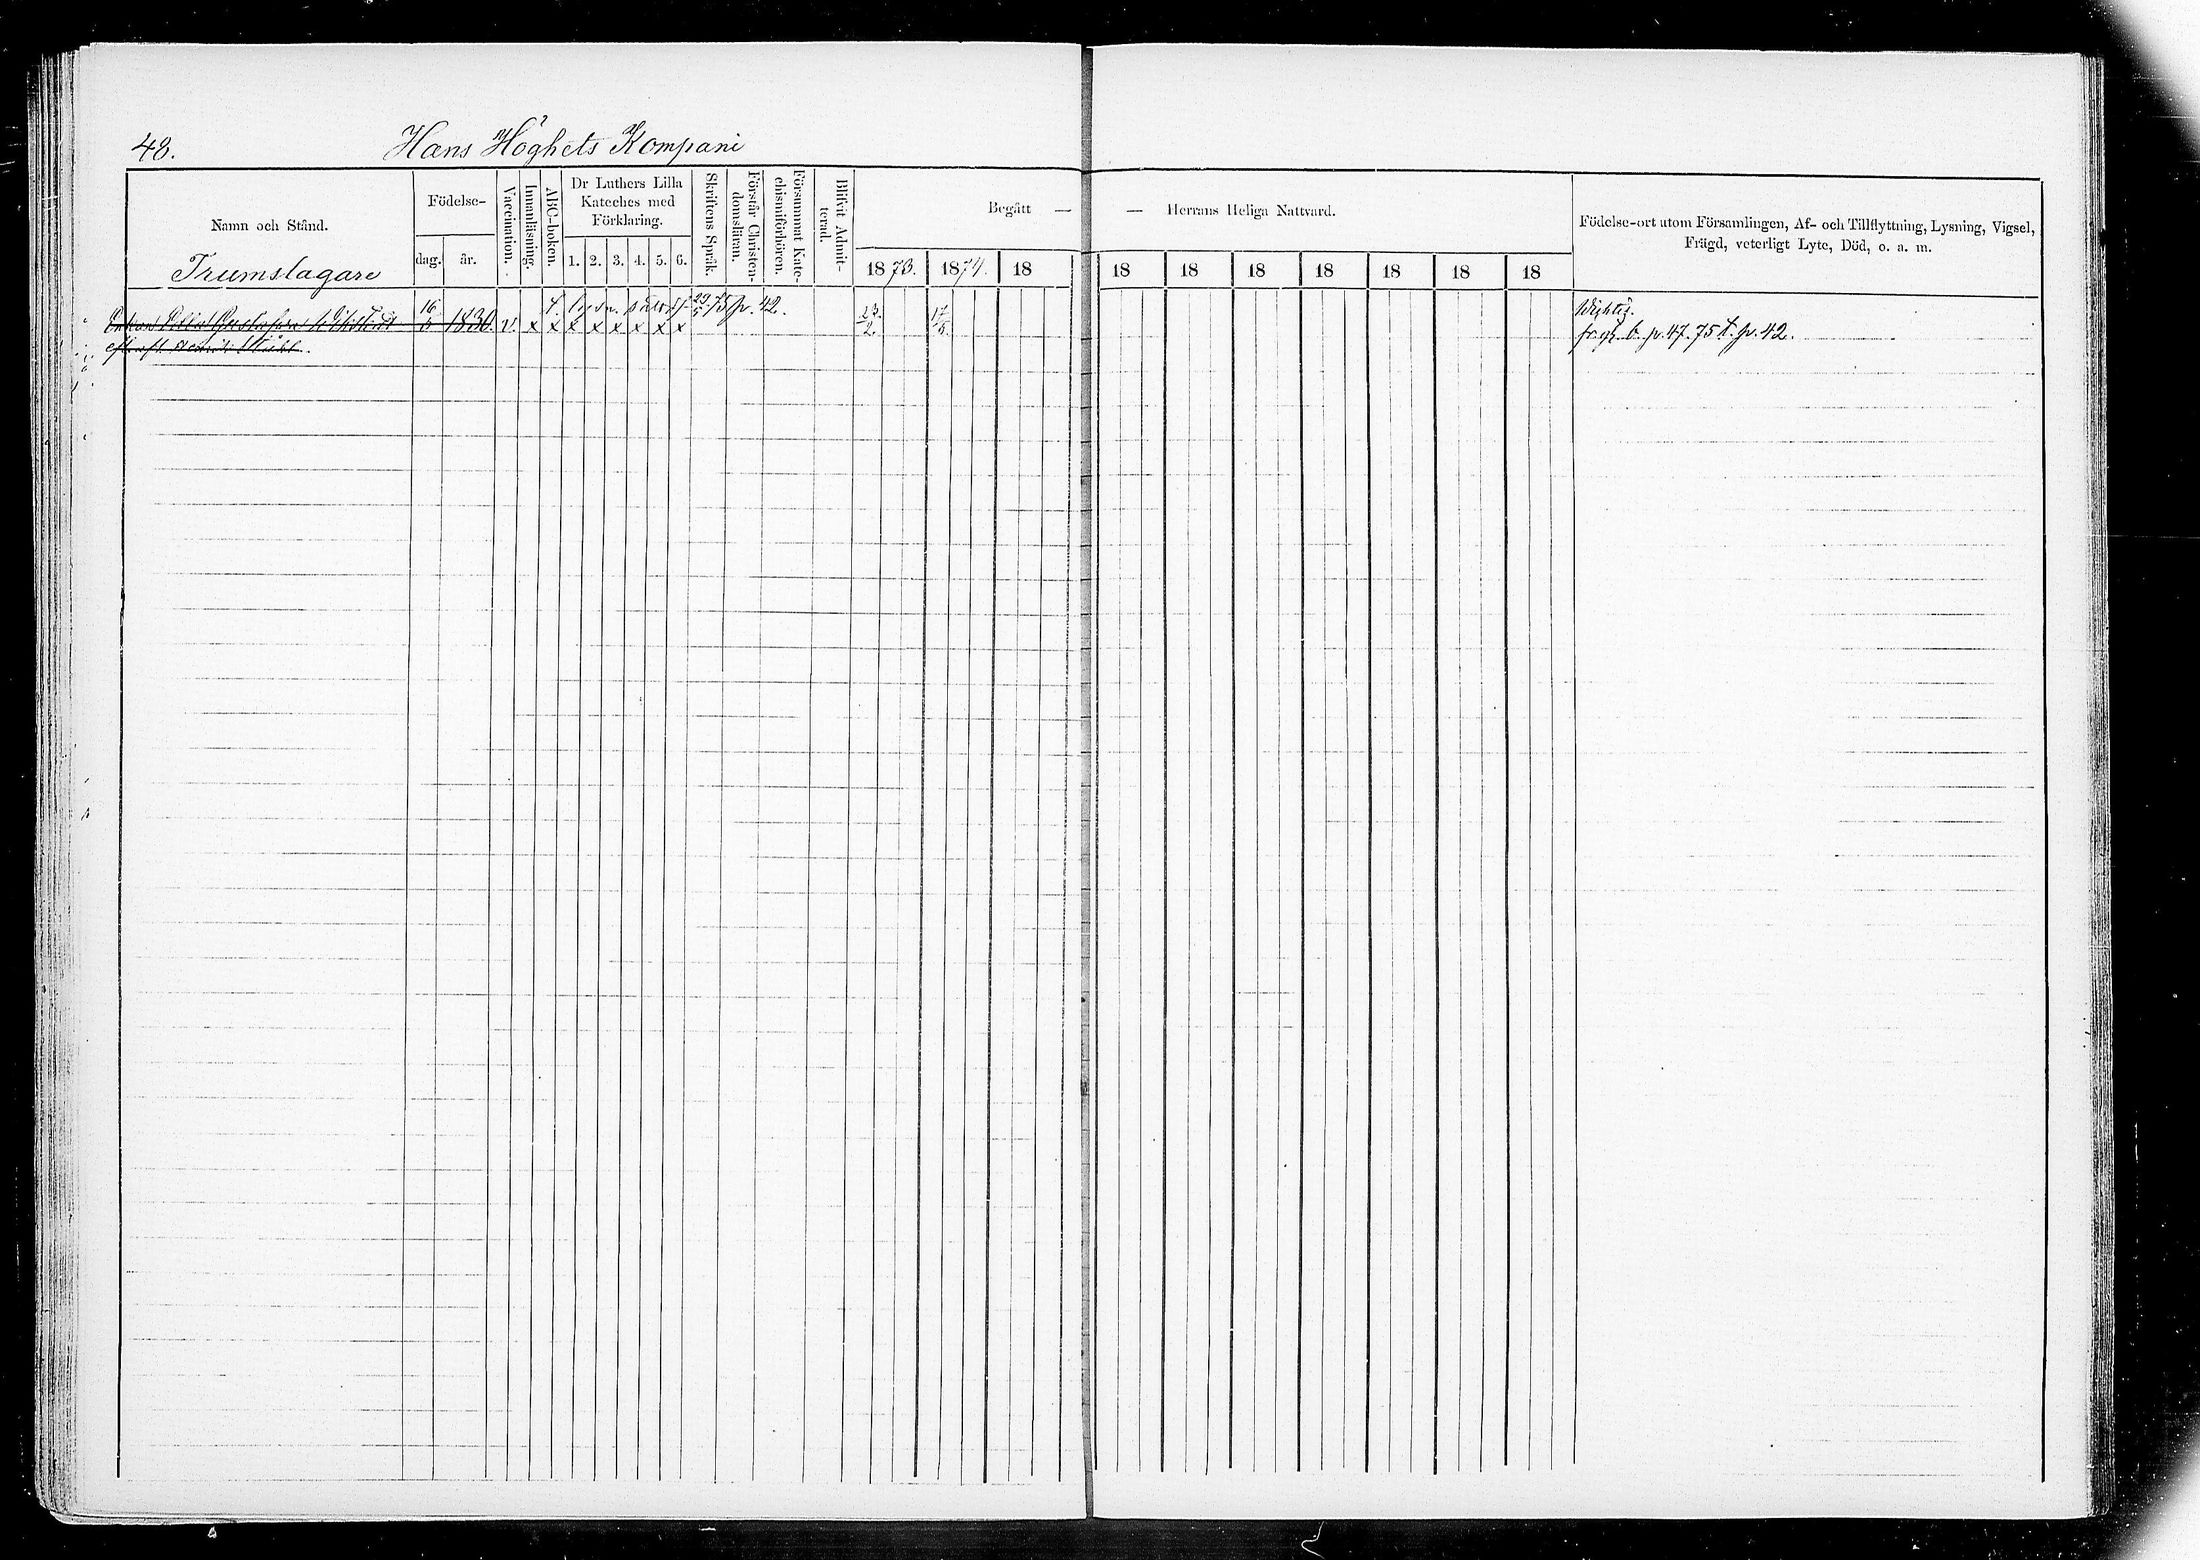 48.
Hans Höghets Kompani
Namn och Stånd.
Trumslagare
Födelse-
dag.
år.
Vaccination.
Innanläsning.
ABC-boken.
Dr Luthers Lilla
Kateches med
Förklaring.
1. 2. 3. 4. 5. 6.
Skriftens Språk.
Förstår Christen-
domsläran.
Försummat Kate-
chismiförhören.
Blifvit Admit-
terad.
Begått —
— Herrans Heliga Nattvard.
1873. 1874. 18
18 18 18 18 18 18 18
Födelse-ort utom Församlingen, Af- och Tillflyttning, Lysning, Vigsel,
Frägd, veterligt Lyte, Död, o. a. m.
16/5 1830. v. x x x x x x x x
75 p. 42.
23/2. 17/5.
Wichtis.
fr. gl. b. p. 47. 75 t. p. 42.